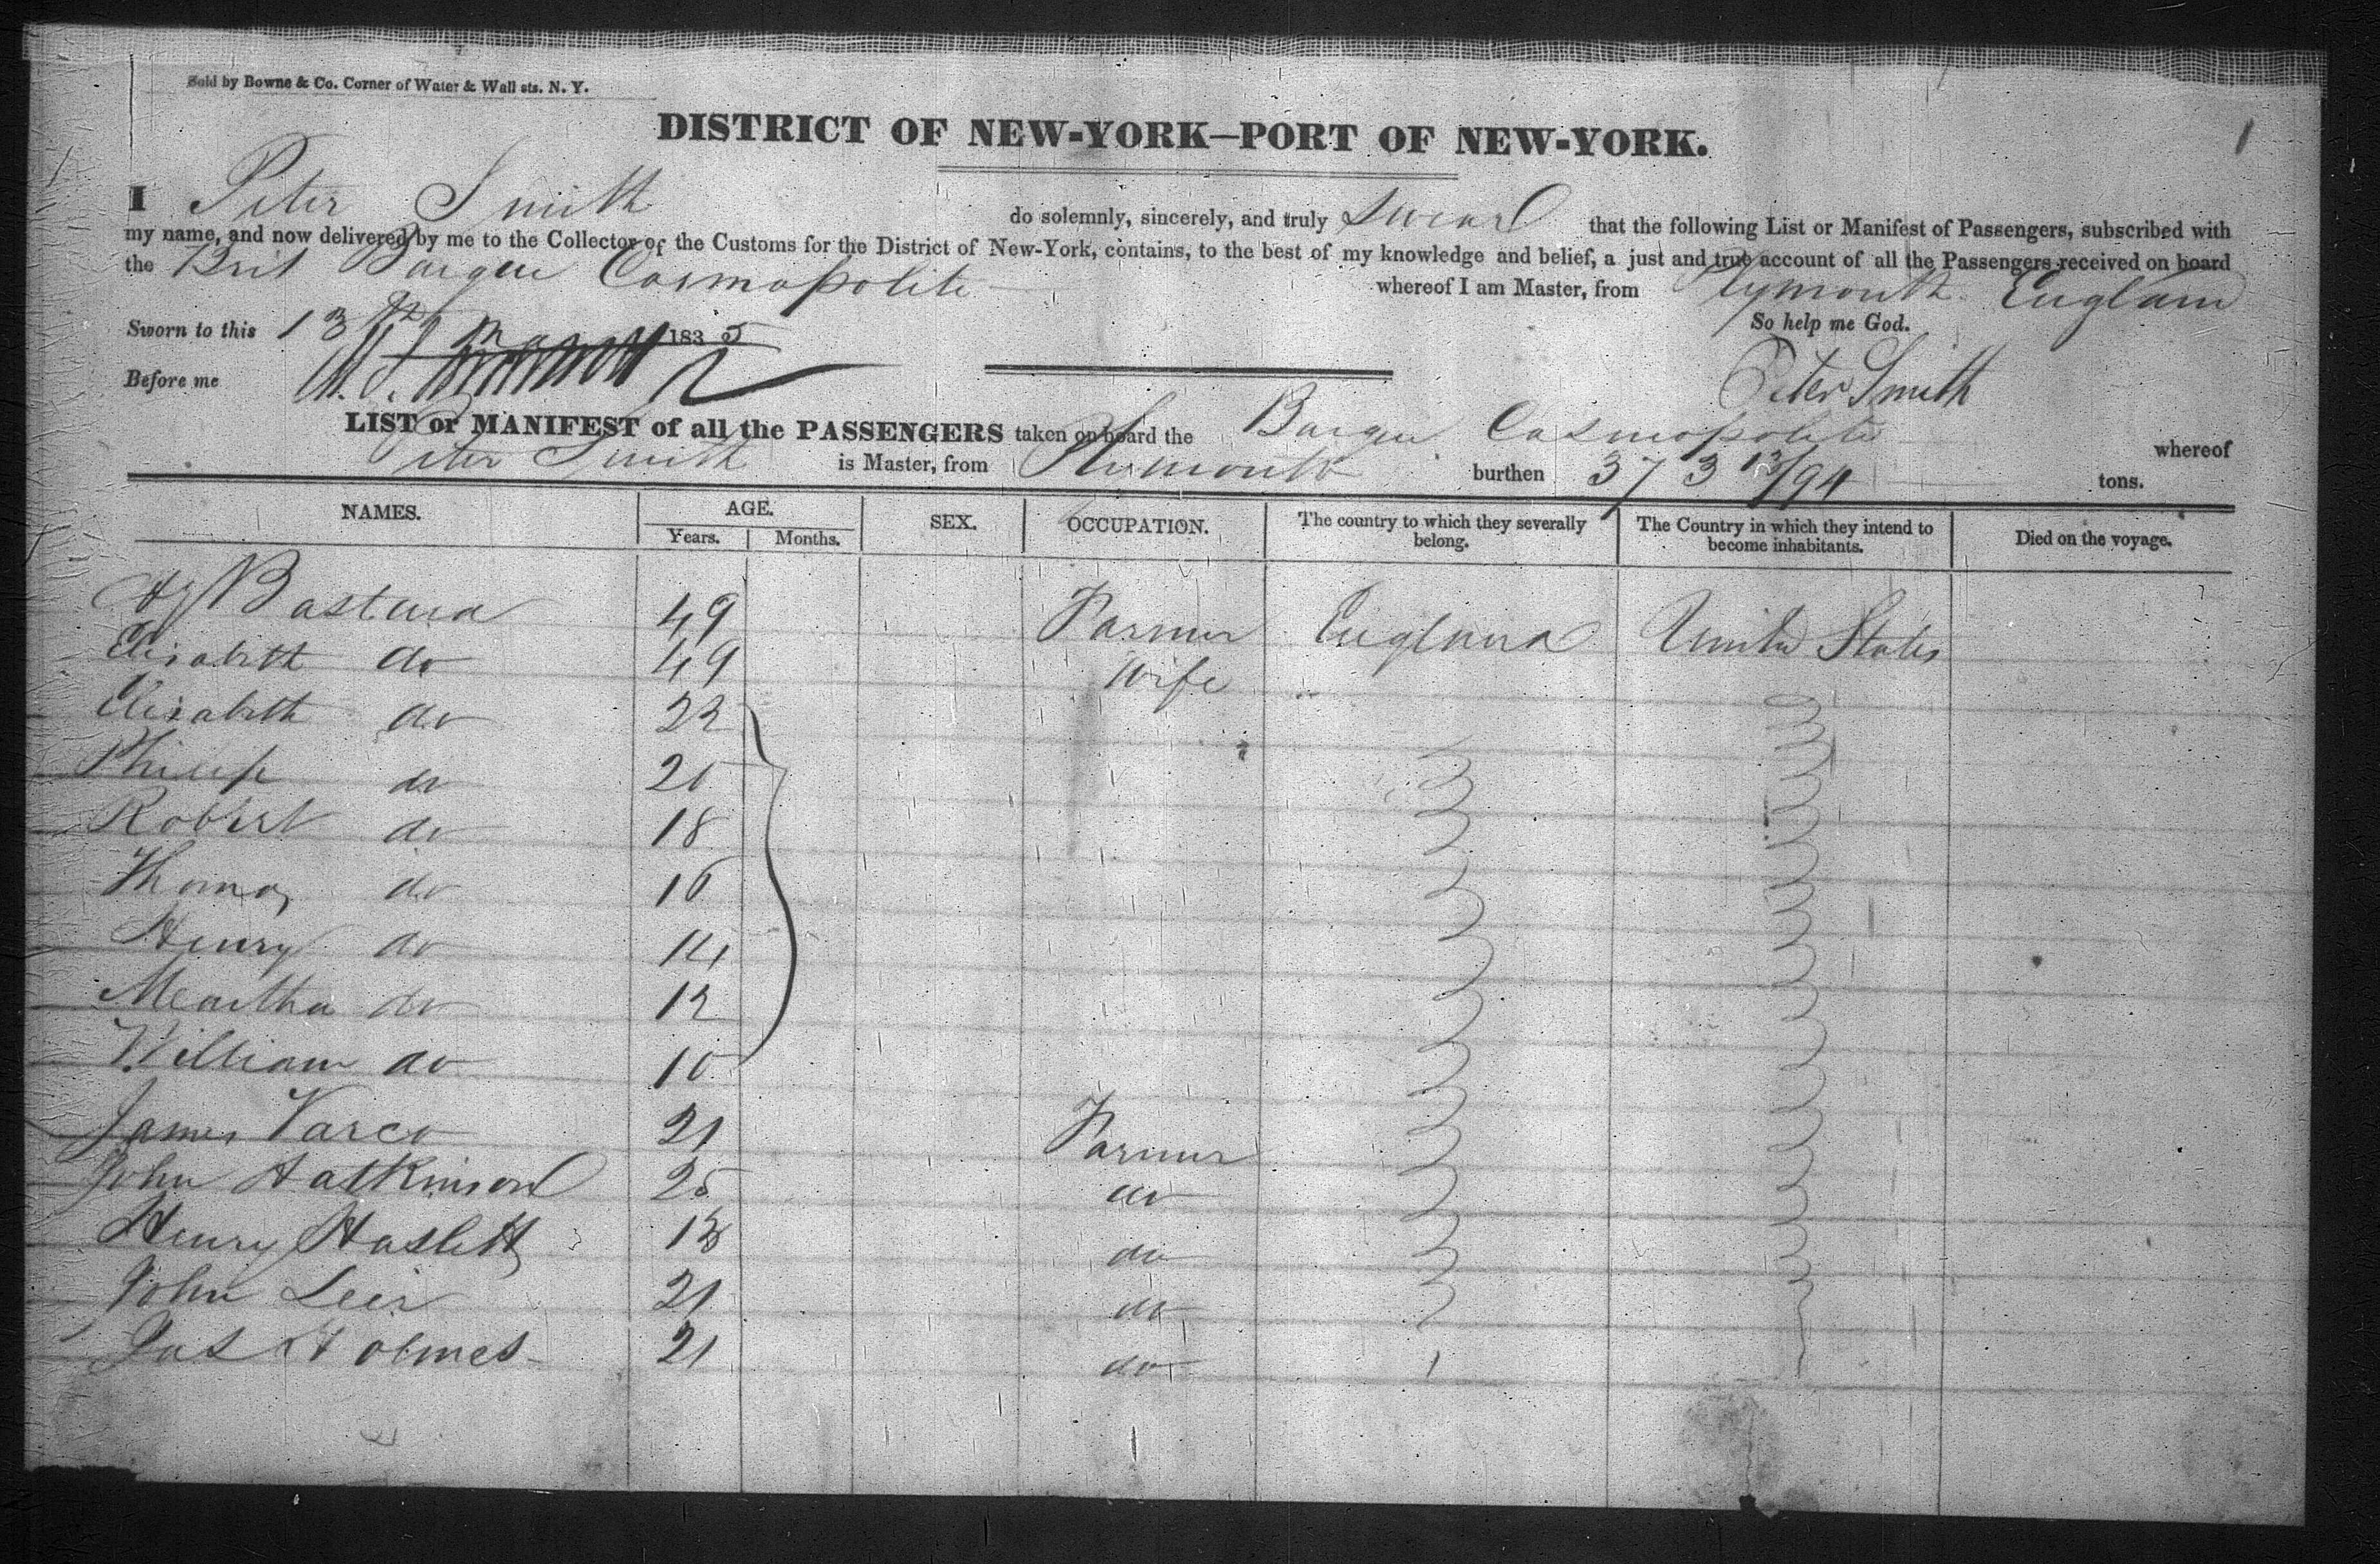 Sold by Bowne & Co. Corner of Water & Wall sts. N. Y.
DISTRICT OF NEW-YORK—PORT OF NEW-YORK.
1
I Peter Smith do solemnly, sincerely, and truly Swear that the following List or Manifest of Passengers, subscribed with
my name, and now delivered by me to the Collector of the Customs for the District of New-York, contains, to the best of my knowledge and belief, a just and true account of all the Passengers received on board
the Brit Barque Cosmopolite whereof I am Master, from Plymouth England
Sworn to this 13th 1835 So help me God.
Before me Peter Smith
LIST or MANIFEST of all the PASSENGERS taken on board the Barque Cosmopolite whereof
Peter Smith is Master, from Plymouth burthen 373 13/94 tons.
NAMES. AGE. Years. Months. SEX. OCCUPATION. The country to which they severally belong. The Country in which they intend to become inhabitants. Died on the voyage.
Hy Bastard 49 Farmer England United States
Elizabeth do 49 Wife
Elizabeth do 22
Philip do 20
Robert do 18
Thomas do 16
Henry do 14
Martha do 12
William do 10
James Varco 21 Farmer
John Hatkinson 25 do
Henry Haslett 18 do
John Lees 21 do
Jas Holmes 21 do